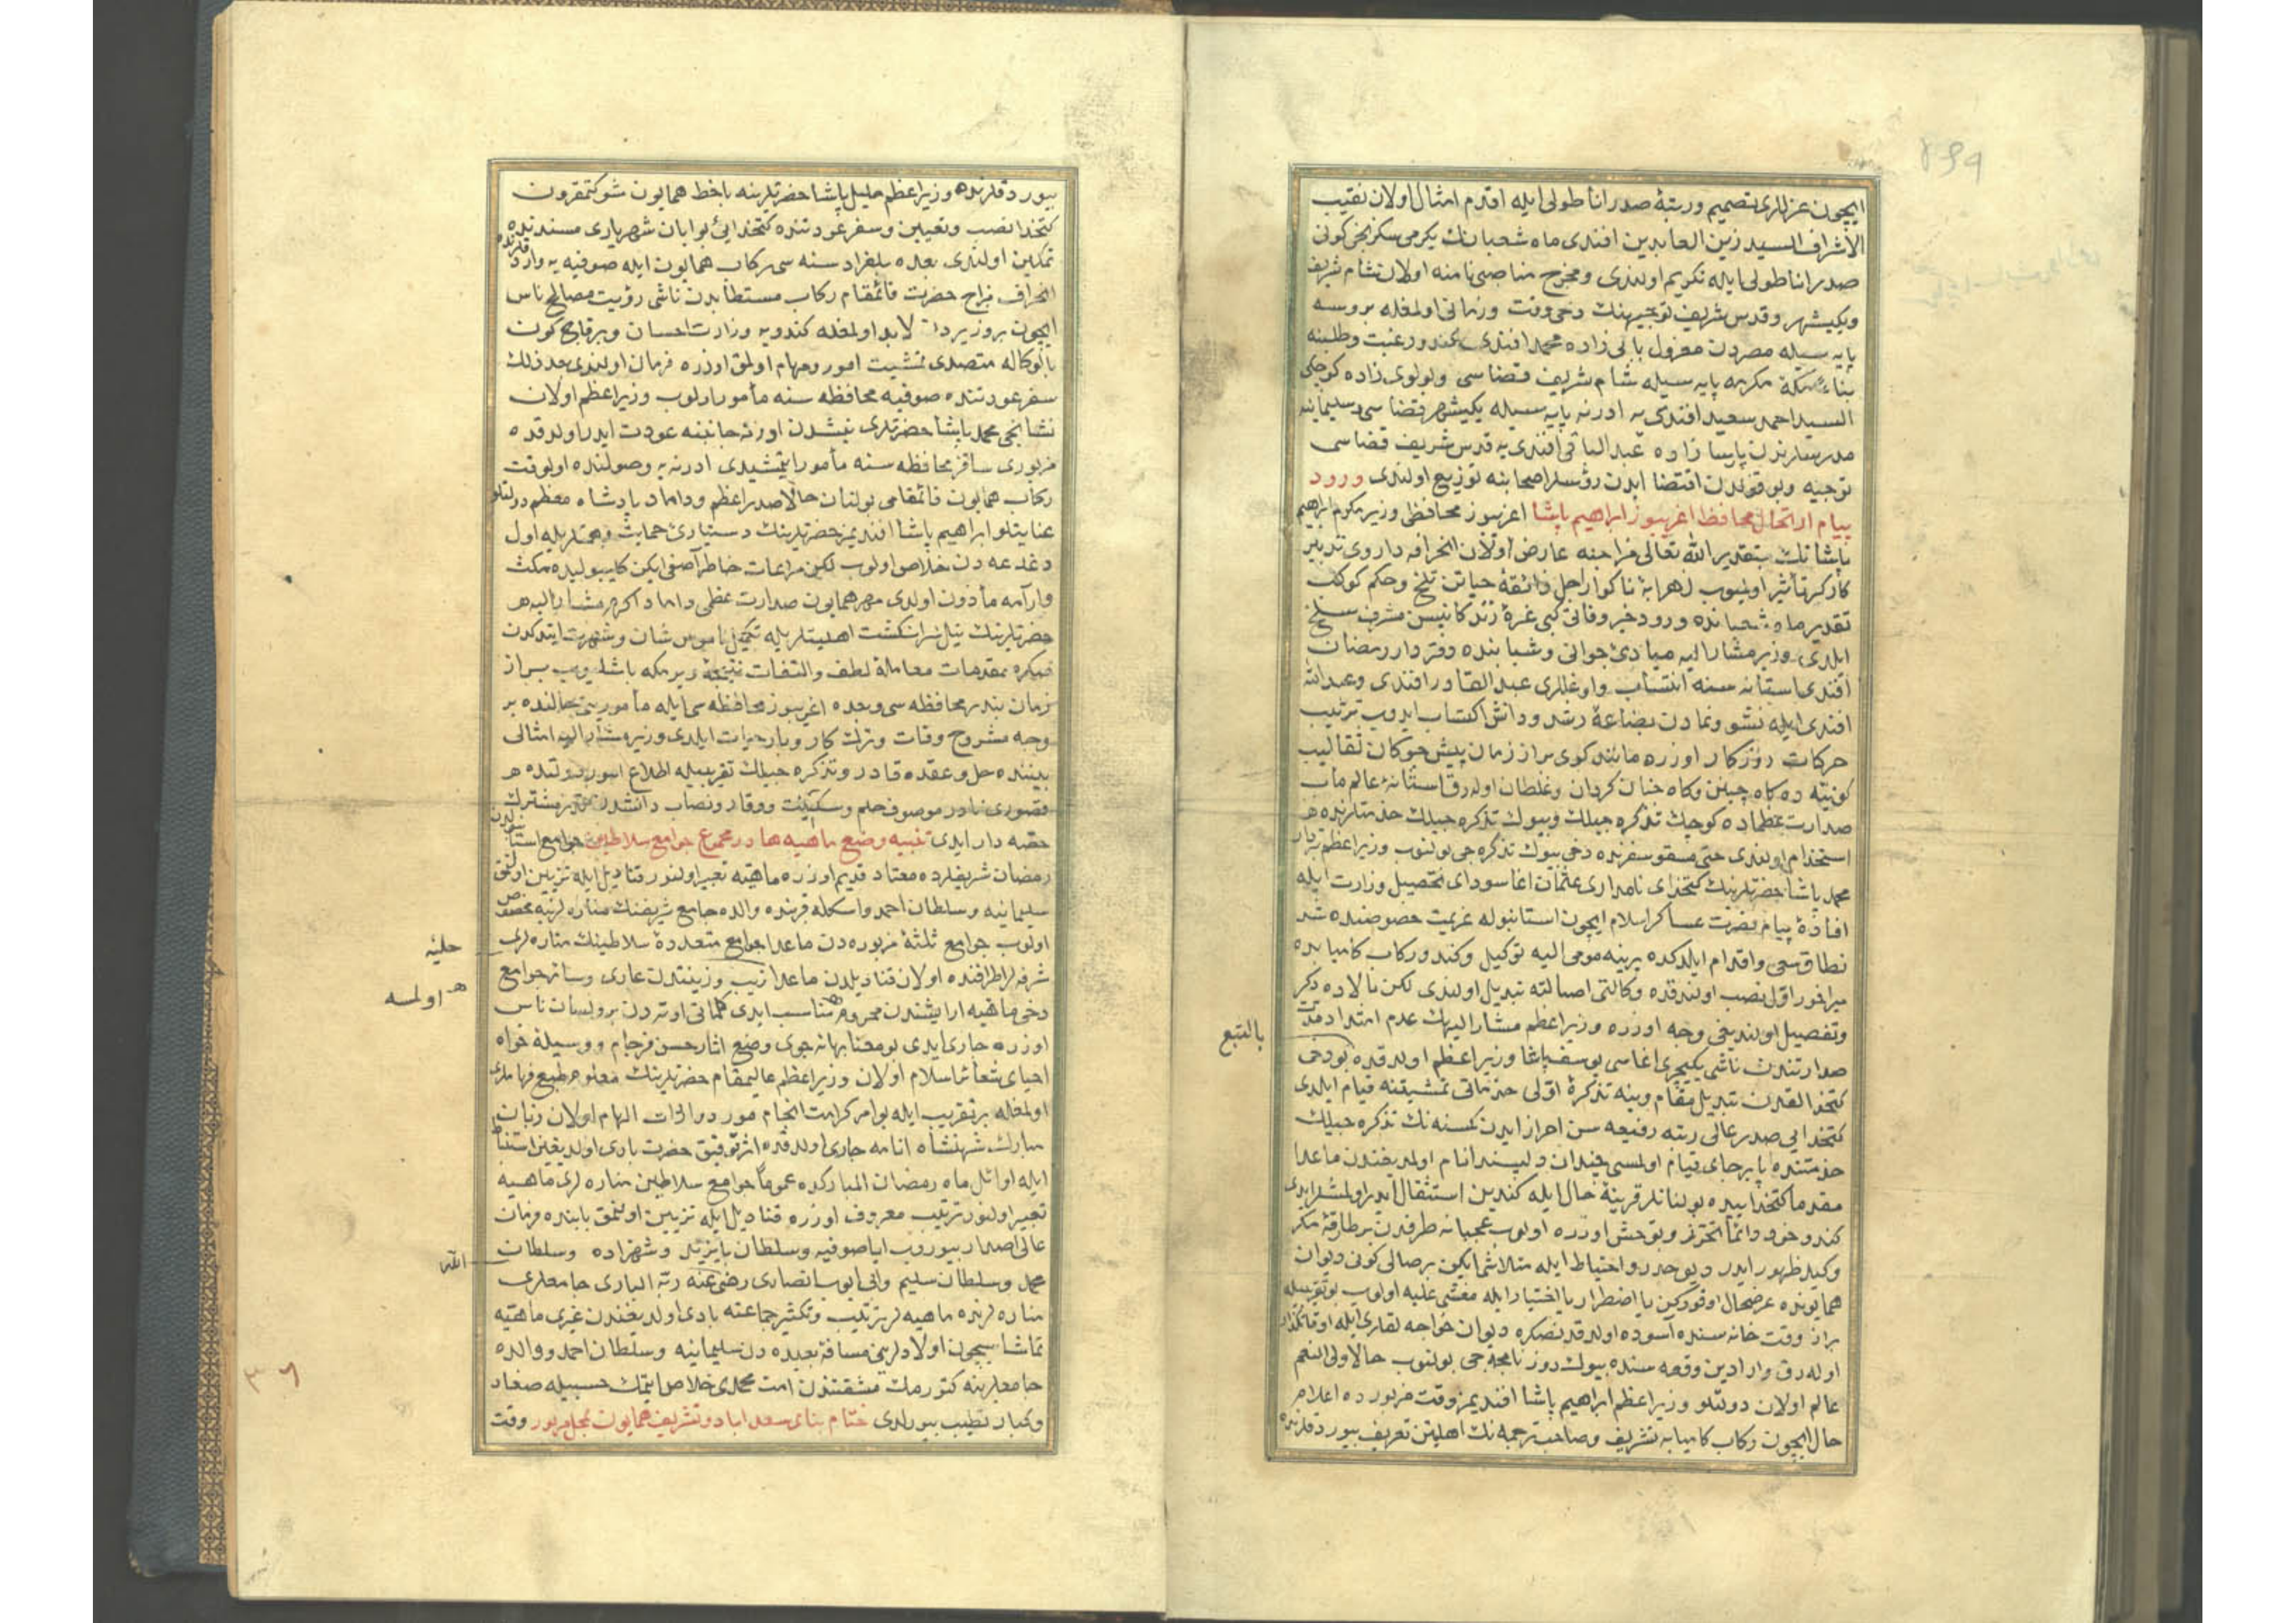 ايچون عزللری تصميم ورتبهٔ صدر اناطولی ايله اقدم امثال اولان نقيب
الاشراف السيد زين العابدين افندی ماه شعبانك يكرمی سكزنجی كونی
صدر اناطولی ايله تكريم اولندی ومخرج مناصبی نامنه اولان شام شريف
ويكيشهر وقدس شريف توجيهنك دخی وقت وزمانی اولمغله بروسه
پايه سيله مصردن معزول بالی زاده محمد افندی يه كندو رغبت وطلبنه
بناء مكهٔ مكرمه پايه سيله شام شريف قضاسی ولولوی زاده كوچك
السيد احمد سعيد افندی يه ادرنه پايه سيله يكيشهر قضاسی وسليمانيه
مدرسلرندن پارسا زاده عبد الباقی افندی يه قدس شريف قضاسی
توجيه وبو قولدن اقتضا ايدن رؤسلر اصحابنه توزيع اولندی ورود
پيام ارتحال محافظ اغريبوز ابراهيم پاشا اغريبوز محافظی وزير مكرم ابراهيم
پاشانك بتقدير الله تعالی مزاجنه عارض اولان انحرافه داروی تدبير
كاركر تأثير اولميوب زهرابهٔ ناكوار اجل ذائقهٔ حياتن تلخ وحكم كوكب
تقدير ماه شعبانده ورود خبر وفاتی كبی غرهٔ زندكانيسن مشرف سلخ
ايلدی وزير مشار اليه مبادئ جوانی وشبابنده دفتردار رمضان
افندی استانه سنه انتساب واوغللری عبد القادر افندی وعبد الله
افندی ايله نشو ونمادن بضاعهٔ رشد ودانش اكتساب ايدوب ترتيب
حركات روزكار اوزره مانند كوی براز زمان پيش چوكان تقاليب
كونيه ده كاه چنين وكاه چنان كردان وغلطان اوله رق استانهٔ عالم ماب
صدارت عظماده كوچك تذكره جيلك وبيوك تذكره جيلك خدمتلرنده
استخدام اولندی حتی مسقو سفرنده دخی بيوك تذكره جی بولنوب وزير اعظم
محمد پاشا حضرتلرينك كتخدای نامداری عثمان اغا سودای تحصيل وزارت ايله
افادهٔ پيام نصرت عساكر اسلام ايچون استانبوله عزيمت خصوصنده شد
نطاق سعی واقدام ايلدكده يرينه مومی اليه توكيل وكندو ركاب كاميابده
ميراخور اول نصب اولندقده وكالتی اصالته تبديل اولندی لكن بالاده ذكر
وتفصيل اولنديغی وجه اوزره وزير اعظم مشار اليهك عدم امتداد مدت
بالتبع
صدارتندن ناشی يكيچری اغاسی يوسف پاشا وزير اعظم اولدقده بو دخی
كتخدالقدن تبديل مقام وينه تذكرهٔ اولی خدماتی تمشيتنه قيام ايلدی
كتخدایی صدر عالی رتبه رفيعه سن احراز ايدن كمسنه نك تذكره جيلك
خدمتنده پابرجای قيام اولمسی چندان دلپسند انام اولمديغندن ماعدا
مقدما كتخداييده بولنانلر قرينهٔ حال ايله كندين استثقال ايدر اولمشلر ايدی
كندو خود دائما تحرز وتوحش اوزره اولوب عجبا نه طرفدن برطارقهٔ مكر
وكيد ظهور ايدر ديو حذر واحتياط ايله متلاشی ايكن برصالی كونی ديوان
همايونده عرضحال اوقوركن يا اضطرار يا اختيار ايله مغشی عليه اولوب بو تقريبله
براز وقت خانه سنده آسوده اولدقدنصكره ديوان خواجه لقاری ايله اوقاتكذار
اوله رق وارادين وقعه سنده بيوك روزنامچه جی بولنوب حالا ولی النعم
عالم اولان دولتلو وزير اعظم ابراهيم پاشا افنديمز وقت مزبورده اعلام
حال ايچون ركاب كاميابه تشريف وصاحب ترجمه نك اهليتن تعريف بيوردقلرنده
بيوردقلرنده وزير اعظم خليل پاشا حضرتلرينه باخط همايون شوكتمقرون
كتخدا نصب وتعيين وسفر عودتنده كتخدایئ بوابان شهرياری مسندنده
تمكين اولندی بعده بلغراد سنه سی ركاب همايون ايله صوفيه يه واردقلرنده
انحراف مزاج حضرت قائمقام ركاب مستطابدن ناشی رؤيت مصالح ناس
ايچون بر وزيردن لابد اولمغله كندويه وزارت احسان وبرقاچ كون
بالوكاله متصدی تمشيت امور ومهام اولمق اوزره فرمان اولندی بعد ذلك
سفر عودتنده صوفيه محافظه سنه مأمور اولوب وزير اعظم اولان
نشانجی محمد پاشا حضرتلری نيشدن ادرنه جانبنه عودت ايدر اولدقده
مزبوری ساقز محافظه سنه مأمور ايتمشيدی ادرنه يه وصولنده اولوقت
ركاب همايون قائمقامی بولنان حالا صدر اعظم وداماد پادشاه معظم دولتلو
عنايتلو ابراهيم پاشا افنديمز حضرتلرينك دستياری حمايت وهمتلريله اول
دغدغه دن خلاص اولوب لكن مراعات خاطر آصفی ايكن كليبوليده مكث
وآرامه مأذون اولدی مهر همايون صدارت عظمی داماد اكرم مشار اليه
حضرتلرينك نيل انكشت اهليتلريله تكميل ناموس شان وشهرت ايتدكدن
صكره مقدمات معاملهٔ لطف والتفات نتيجه ويرمكه باشليوب براز
زمان بندر محافظه سی وبعده اغريبوز محافظه سی ايله مأموريتی حالنده بر
وجه مشروح وفات وترك كار وبار حيات ايلدی وزير مشار اليه امثالی
بيننده حل وعقده قادر وتذكره جيلك تقريبيله اطلاع امور دولتده
قصوری نادر موصوف حلم وسكينت ووقار ونصاب دانشدن مشترك
حصه دار ايدی تنبيه وضع ماهيه ها در مجموع جوامع سلاطين جوامع استانبولدن
رمضان شريفلرده معتاد قديم اوزره ماهيه تعبير اولنور قناديل ايله تزيين اولنمق
سليمانيه وسلطان احمد واسكله قربنده والده جامع شريفنك مناره لرينه مخصوص
اولوب جوامع ثلثهٔ مزبوره دن ماعدا جوامع متعددهٔ سلاطينك مناره لری
حليهٔ
شرفه لر اطرافنده اولان قناديلدن ماعدا زيب وزينتدن عاری وسائر جوامع
اولمسه
دخی ماهيه ارايشندن محروم مناسب ايدی كلماتی اوته دن برو لسان ناس
اوزره جاری ايدی بو معنا بهانه جوی وضع اثار حسن فرجام ووسيلهٔ خواه
احيای شعائر اسلام اولان وزير اعظم عاليمقام حضرتلرينك معلوم طبع فهاملری
اولمغله برتقريب ايله بو امر كرامت انجام مورد واردات الهام اولان زبان
مبارك شهنشاه انامه جاری اولدقده اثر توفيق حضرت باری اولديغين استنباط
ايله اوائل ماه رمضان المباركده عموما جوامع سلاطين مناره لری ماهيه
تعبير اولنور ترتيب معروف اوزره قناديل ايله تزيين اولنمق بابنده فرمان
عالی اصدار بيوروب اياصوفيه وسلطان بايزيد وشهزاده وسلطان
الله
محمد وسلطان سليم وابی ايوب انصاری رضی عنه ربه الباری جامعلری
مناره لرنده ماهيه لر ترتيب وتكثير جماعته بادی اولديغندن غيری ماهيه
تماشاسيچون اولادلرينی مسافهٔ بعيده دن سليمانيه وسلطان احمد ووالده
جامعلرينه كتورمك مشقتندن امت محمدی خلاص ايتمك حسبيله صغار
وكبار تطييب بيورلدی ختام بنای سعداباد وتشريف همايون بمحل مزبور وقت